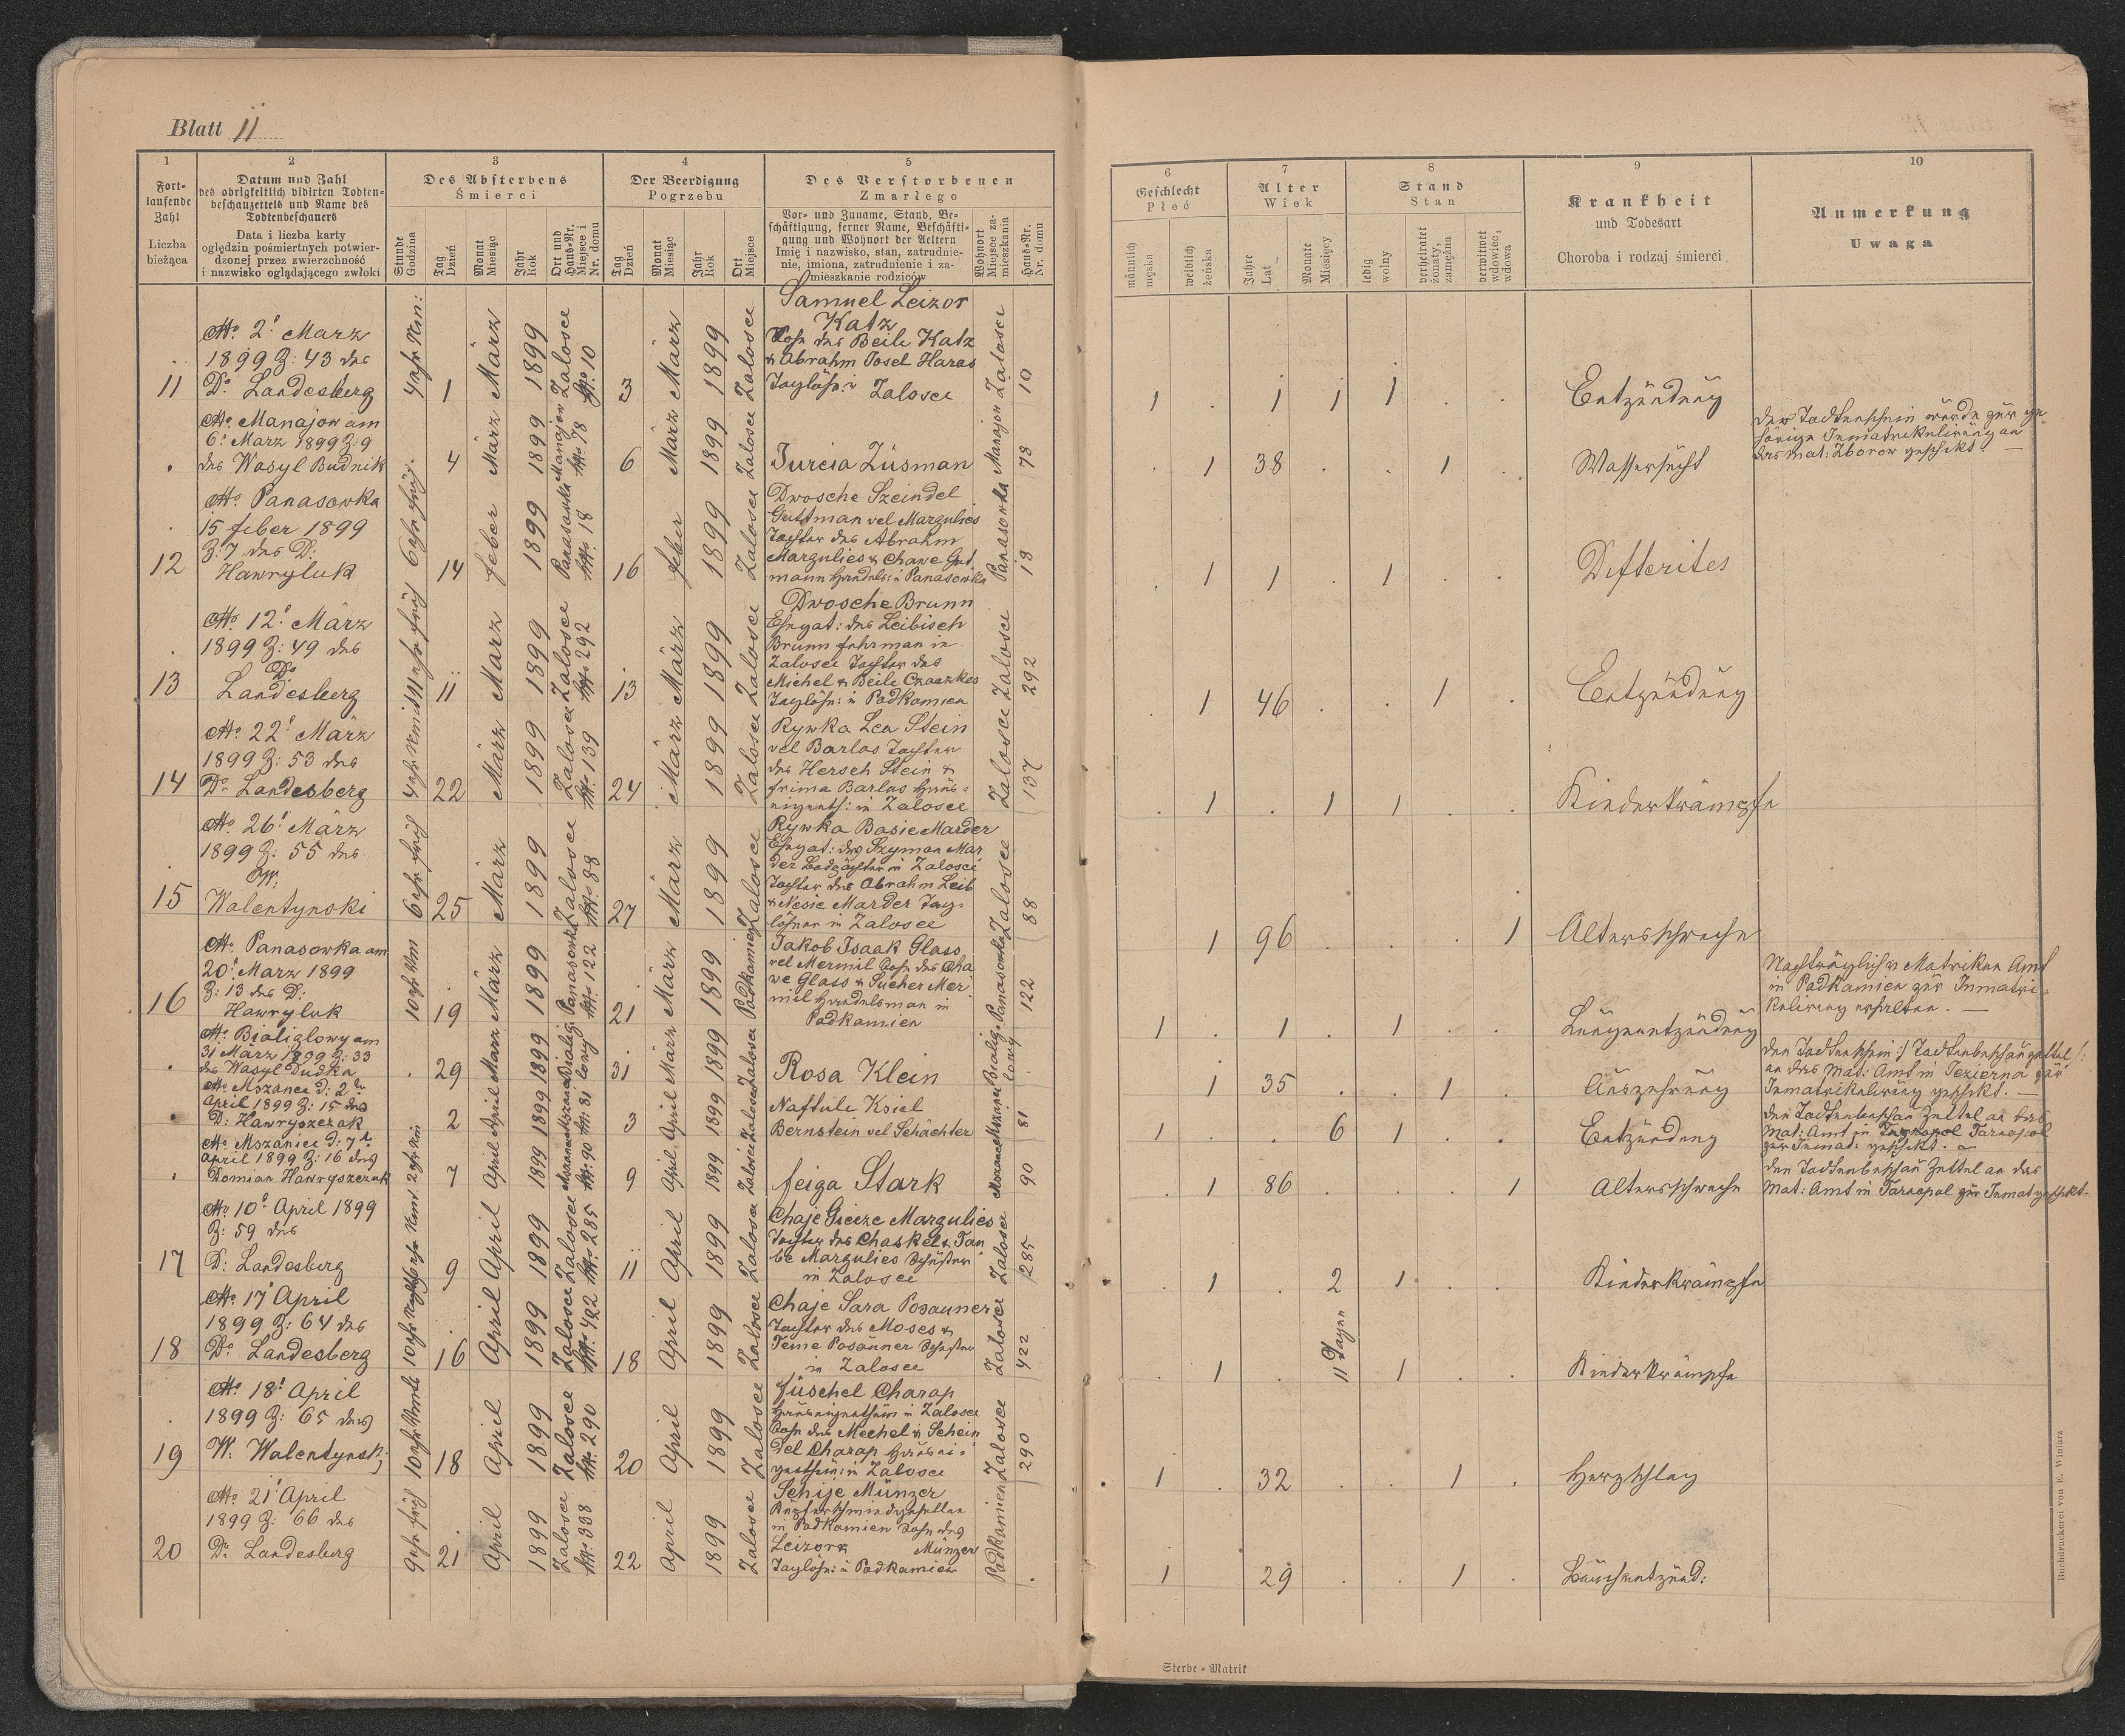 Blatt 11
1
2
3
4
5
Fort-
laufende
Zahl
Liczba
bieżąca
Datum und Zahl
des obrigkeitlich vidirten Todten-
beschauzettels und Name des
Todtenbeschauers
Data i liczba karty
oględzin pośmiertnych potwier-
dzonej przez zwierzchność
i nazwisko oglądającego zwłoki
Des Absterbens
Śmierci
Stunde
Godzina
Tag
Dzień
Monat
Miesiąc
Jahr
Rok
Ort und
Haus-Nr.
Miejsce i
Nr. domu
Der Beerdigung
Pogrzebu
Tag
Dzień
Monat
Miesiąc
Jahr
Rok
Ort
Miejsce
Des Verstorbenen
Zmarłego
Vor- und Zuname, Stand, Be-
schäftigung, ferner Name, Beschäfti-
gung und Wohnort der Aeltern
Imię i nazwisko, stan, zatrudnie-
nie, imiona, zatrudnienie i za-
mieszkanie rodziców
Wohnort
Miejsce za-
mieszkania
Haus-Nr.
Nr. domu
6
7
8
9
10
Geschlecht
Płeć
männlich
męska
weiblich
żeńska
Alter
Wiek
Jahre
Lat
Monate
Miesięcy
Stand
Stan
ledig
wolny
verheiratet
żonaty,
zamężna
verwitwet
wdowiec,
wdowa
Krankheit
und Todesart
Choroba i rodzaj śmierci
Anmerkung
Uwaga
11
No 2t März
1899 Z: 43 des
Dr Landesberg
4 uhr Nm:
1
März
1899
Zalosce
No 10
3
März
1899
Zalosce
Samuel Leizor
Katz
Sohn der Beile Katz
& Abrahm Josel Haras
Taglöhn: in Zalosce
Zalosce
10
1 . 1 1 1 . .
Entzündung
No Manajow am
6t März 1899 Z: 9
des Wasyl Budnik
4
März
1899
Manajow
No 78
6
März
1899
Zalosce
Jurcia Züsman
Manajow
78
. 1 38 . . 1 .
Wassersucht
Der Todtenschein wurde zur ge-
hörigen Inmatrikulirung an
das Mat: Zborow geschikt. —
12
No Panasowka
15 feber 1899
Z: 7 des D:
Hawryluk
6 uhr früh
14
feber
1899
Panasowka
No 18
16
feber
1899
Zalosce
Dwosche Szeindel
Guttman vel Margulies
Tochter des Abrahm
Margulies & Chawe Gut
mann Handels: in Panasowka
Panasowka
18
. 1 1 . 1 . .
Difterites
13
No 12t März
1899 Z: 49 des
Dr
Landesberg
11 uhr früh
11
März
1899
Zalosce
No 292
13
März
1899
Zalosce
Dwosche Brunn
Ehegat: des Leibisch
Brunn fuhrman in
Zalosce Tochter des
Michel & Beile Czaczkes
Taglöhn: in Podkamien
Zalosce
292
. 1 46 . . 1 .
Entzündung
14
No 22t März
1899 Z: 53 des
Dr Landesberg
4 uhr
22
März
1899
Zalosce
No 139
24
März
1899
Zalosce
Rywka Lea Stein
vel Barlas Tochter
des Hersch Stein &
frima Barlas Haus-
eigenth: in Zalosce
Zalosce
137
. 1 . 1 1 . .
Kinderkrämpfe
15
No 26t März
1899 Z: 55 des
W:
Walentynski
6 uhr früh
25
März
1899
Zalosce
No 88
27
März
1899
Zalosce
Rywka Basie Marder
Ehegat: des Szyman Mar
der Badpächter in Zalosce
Tochter des Abrahm Leib
& Nesie Marder Tag-
löhner in Zalosce
Zalosce
88
1 96 . . . 1
Altersschwäche
16
No Panasowka am
20t März 1899
Z: 13 des D:
Hawryluk
10 uhr Vm
19
März
1899
Panasowka
No 122
21
März
1899
Podkamien
Jakob Isaak Glass
vel Mermil Sohn der Cha
we Glass & Sucher Mer
mil Handelsman in
Podkamien
Panasowka
122
1 . 1 . 1 . .
Lungenentzündung
Nachträglich v Matriken Amt
in Podkamien zur Inmatri-
kulirung erhalten. —
No Bialiglowy am
31 März 1899 Z: 33
des Wasyl Dudka
29
März
1899
Bialig-
lowy
31
März
1899
Zalosce
Rosa Klein
Bialig-
lowy
. 1 35 . . 1 .
Auszehrung
Den Todtenschein :/ Todtenbeschauzettel /:
an das Mat: Amt in Jezierna zur
Inmatrikulirung geschikt. —
No Mszanec d: 2ten
April 1899 Z: 15 des
D: Hawryszczak
2
April
1899
Mszanec
No 81
3
April
1899
Zalosce
Naftule Ksiel
Bernstein vel Schächter
Mszanec
81
1 . . 6 1 . .
Entzündung
Den Todtenbeschau Zettel an das
Mat: Amt in Tarnopol
zur Inmat: geschikt. —
No Mszaniec d: 7t
April 1899 Z: 16 des
Domian Hawryszczuk
2 uhr Nm
7
April
1899
Mszanec
No 90
9
April
1899
Zalosce
feiga Stark
Mszanec
90
. 1 86 . . . 1
Altersschwäche
Den Todtenbeschau Zettel an das
Mat: Amt in Tarnopol zur Inmat geschikt.
17
No 10t April 1899
Z: 59 des
D: Landesberg
9
April
1899
Zalosce
No 285
11
April
1899
Zalosce
Chaje Gieze Margulies
Tochter des Chaskel & Tau
be Margulies Schuster
in Zalosce
Zalosce
285
. 1 . 2 1 . .
Kinderkrämpfe
18
No 17 April
1899 Z: 64 des
Dr Landesberg
10 uhr
16
April
1899
Zalosce
No 422
18
April
1899
Zalosce
Chaje Sara Posauner
Tochter des Moses &
Teme Posauner Schuster
in Zalosce
Zalosce
422
. 1 . 11 Tagen 1 . .
Kinderkrämpfe
19
No 18t April
1899 Z: 65 des
W. Walentynski
10 uhr
18
April
1899
Zalosce
No 290
20
April
1899
Zalosce
füschel Charap
Hauseigenthüm in Zalosce
Sohn des Mechel & Schein
del Charap Hausei-
genthüm: in Zalosce
Zalosce
290
1 . 32 . . 1 .
Herzschlag
20
No 21 April
1899 Z: 66 des
Dr Landesberg
9 uhr früh
21
April
1899
Zalosce
No 338
22
April
1899
Zalosce
Schije Münzer
Kupferschmiedgesellen
in Podkamien Sohn des
Leizor & Münzer
Taglöhn: in Podkamien
Podkamien
1 . 29 . . 1 .
Bauchentzünd:
Sterbe-Matrik
Buchdruckerei von E. Winiarz